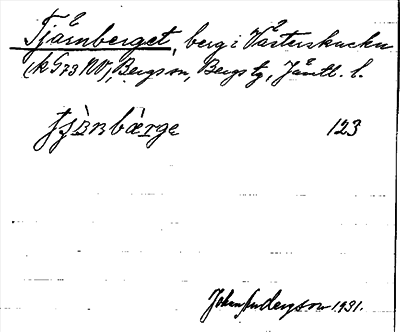 Tjärnberget, berg i Västerskucku
(k G 73 NV), Bergs sn, Bergs tg, Jämtl. l.
tjènbàrge 123
Johan Andersson 1931.